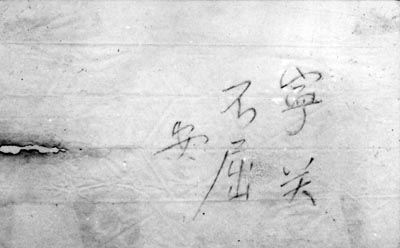 寧关
不屈
安